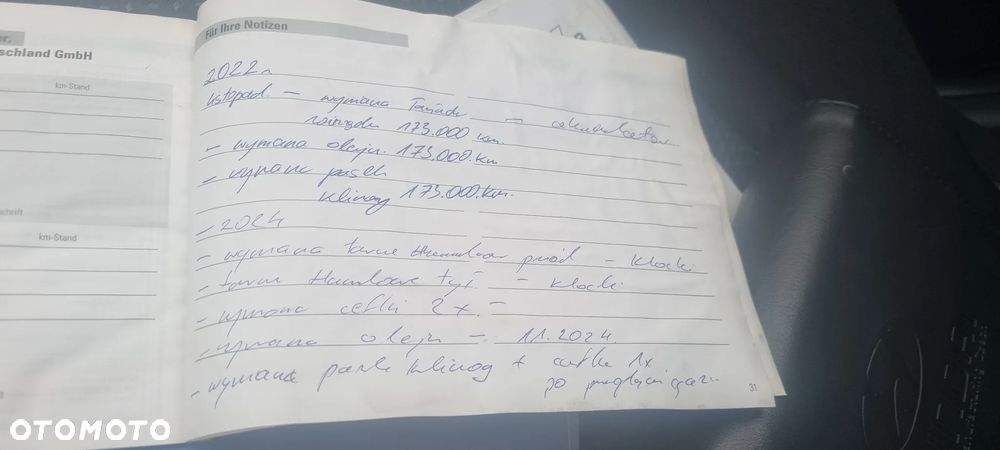 er.
schland GmbH
km-Stand
schrift
km-Stand
Für Ihre Notizen
2022r
listopad. – wymiana – akumulator
173.000 km.
– wymiana oleju. 173.000.km
– wymiana paska
klinowy 173.000.km.
– 2024
– wymiana tarcze Hamulcowe przód – klocki
– tarcze Hamulcowe tył. – klocki
– wymiana cefki 2x. –
– wymiana oleju – 11.2024.
– wymiana paska klinowy + cefka 1x
po
31
OTOMOTO